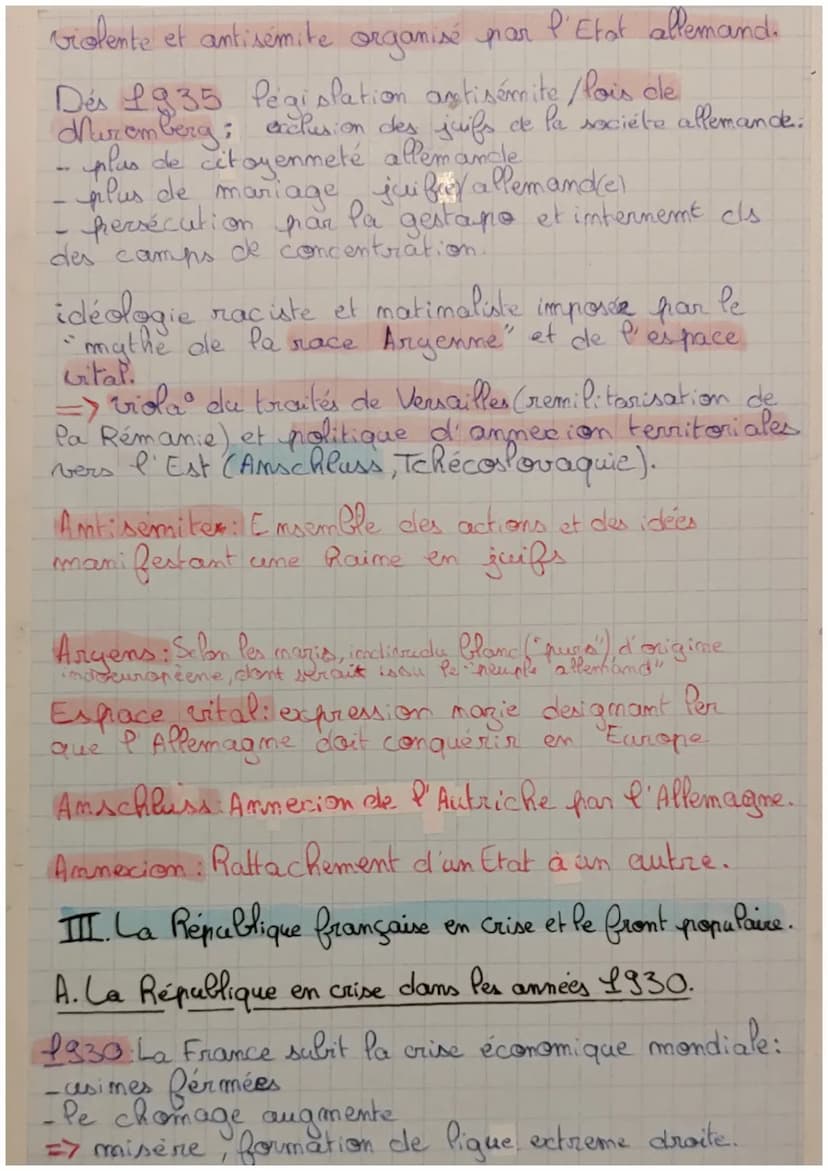 violente et antisémite organisé par l'Etat allemand.
Dés 1935 législation antisémite / lois de
Nuremberg ; exclusion des juifs de la sociéte allemande:
- plus de citoyenneté allemande
- plus de mariage juif(e)/allemand(e)
- persécution par la gestapo et internemt ds
des camps de concentration.
idéologie raciste et nationaliste imposée par le
"mythe de la race Aryenne" et de l'espace
vital.
=> viola° du traités de Versailles (remilitarisation de
la Rémanie) et politique d'annexion territoriales
vers l'Est (Anschluss, Tchécoslovaquie).
Antisémites : Ensemble des actions et des idées
manifestant une haine en juifs
Aryens : Selon les nazis, individu blanc ("purs") d'origine
indoeuropéene, dont serait issu le "peuple allemand"
Espace vital : expression nazie designant l'er
que l'Allemagne doit conquérir en Europe
Anschluss : Annexion de l'Autriche par l'Allemagne.
Annexion : Rattachement d'un Etat à un autre.
III. La République française en crise et le front populaire.
A. La République en crise dans les années 1930.
1930 : La France subit la crise économique mondiale :
- usines férmées
- le chomage augmente
=> misère, formation de ligue extreme droite.